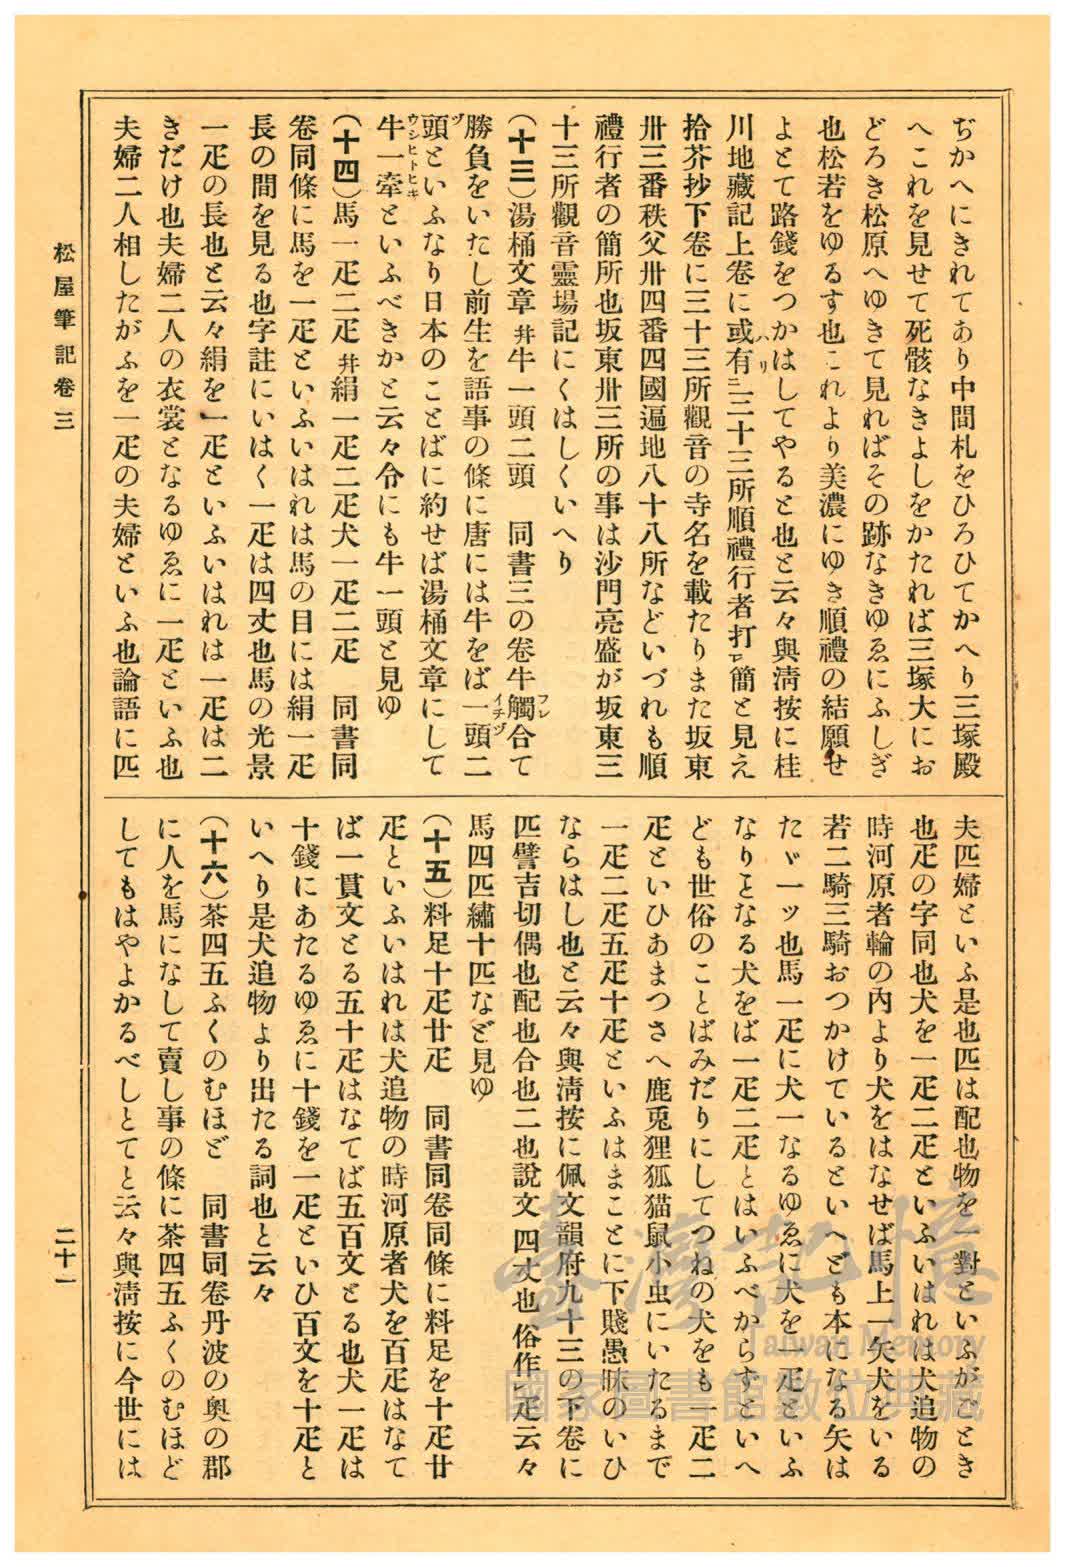 ぢかへにきれてあり中間札をひろひてかへり三塚殿
へこれを見せて死骸なきよしをかたれば三塚大にお
どろき松原へゆきて見ればその跡なきゆゑにふしぎ
也松若をゆるす也これより美濃にゆき順禮の結願せ
よとて路錢をつかはしてやると也と云々與淸按に桂
川地藏記上卷に或有ハリ二三十三所順禮行者打ヒ簡と見え
拾芥抄下卷に三十三所觀音の寺名を載たりまた坂東
卅三番秩父卅四番四國遍地八十八所などいづれも順
禮行者の簡所也坂東卅三所の事は沙門亮盛が坂東三
十三所觀音靈場記にくはしくいへり
(十三)湯桶文章幷牛一頭二頭　同書三の卷牛觸フレ合て
勝負をいたし前生を語事の條に唐には牛をば一頭イチヅ二
頭ヅといふなり日本のことばに約せば湯桶文章にして
牛一牽ウシヒトヒキといふべきかと云々今にも牛一頭と見ゆ
(十四)馬一疋二疋幷絹一疋二疋犬一疋二疋　同書同
卷同條に馬を一疋といふいはれは馬の目には絹一疋
長の間を見る也字註にいはく一疋は四丈也馬の光景
一疋の長也と云々絹を一疋といふいはれは一疋は二
きだけ也夫婦二人の衣裳となるゆゑに一疋といふ也
夫婦二人相したがふを一疋の夫婦といふ也論語に匹
夫匹婦といふ是也匹は配也物を一對といふがごとき
也疋の字同也犬を一疋二疋といふいはれは犬追物の
時河原者輪の内より犬をはなせば馬上一矢犬をいる
若二騎三騎おつかけているといへども本になる矢は
たゞ一ッ也馬一疋に犬一なるゆゑに犬を一疋といふ
なりことなる犬をば一疋二疋とはいふべからずといへ
ども世俗のことばみだりにしてつねの犬をも一疋二
疋といひあまつさへ鹿兎狸狐猫鼠小虫にいたるまで
一疋二疋五疋十疋といふはまことに下賤愚昧のいひ
ならはし也と云々與淸按に佩文韻府九十三の下卷に
匹譬吉切偶也配也合也二也說文 四丈也俗作レ疋云々
馬四匹繡十匹など見ゆ
(十五)料足十疋廿疋　同書同卷同條に料足を十疋廿
疋といふいはれは犬追物の時河原者犬を百疋はなて
ば一貫文とる五十疋はなてば五百文とる也犬一疋は
十錢にあたるゆゑに十錢を一疋といひ百文を十疋と
いへり是犬追物より出たる詞也と云々
(十六)茶四五ふくのむほど　同書同卷丹波の奧の郡
に人を馬になして賣し事の條に茶四五ふくのむほど
してもはやよかるべしとてと云々與淸按に今世には
松屋筆記卷三
二十一
臺灣記憶
Taiwan Memory
國家圖書館數位典藏